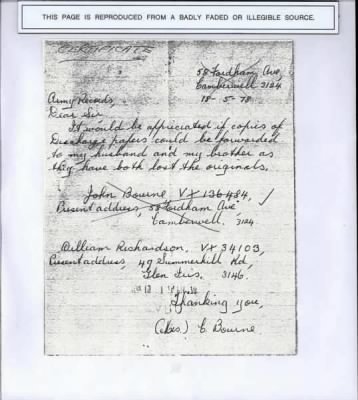 THIS PAGE IS REPRODUCED FROM A BADLY FADED OR ILLEGIBLE SOURCE.
CERTIFICATE
58 Fordham Ave,
Camberwell 3124
18-5-78
Army Records,
Dear Sir
It would be appreciated if copies of
Discharge papers could be forwarded
to my husband and my brother as
they have both lost the originals.
John Bourne VX136484,
Present address 58 Fordham Ave
Camberwell, 3124
William Richardson, VX34103,
Present address, 49 Summerhill Rd,
Glen Iris, 3146.
Thanking you,
(Mrs) E Bourne